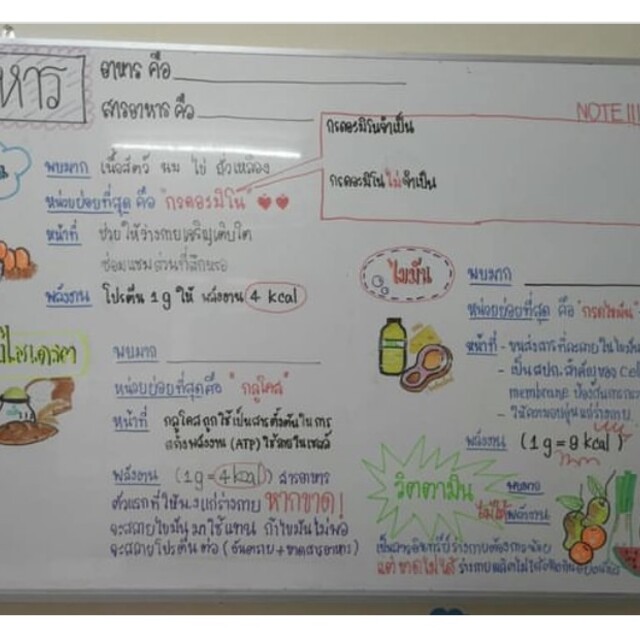 หาร
อาหาร คือ
สารอาหาร คือ
NOTE |||
กรดอะมิโนจำเป็น
กรดอะมิโนไม่จำเป็น
พบมาก เนื้อสัตว์ นม ไข่ ถั่วเหลือง
หน่วยย่อยที่สุด คือ "กรดอะมิโน"
หน้าที่ ช่วยให้ร่างกายเจริญเติบโต
ซ่อมแซมส่วนที่สึกหรอ
พลังงาน โปรตีน 1 g ให้ พลังงาน 4 kcal
พบมาก
หน่วยย่อยที่สุดคือ "กลูโคส"
หน้าที่ กลูโคสถูกใช้เป็นสารตั้งต้นในการ
สร้างพลังงาน (ATP) ใช้ภายในเซลล์
พลังงาน (1 g = 4 kcal) สารอาหาร
ตัวแรกที่ให้ พ.ง แก่ร่างกาย หากขาด!
จะสลายไขมันมาใช้แทน ถ้าไขมันไม่พอ
จะสลายโปรตีนต่อ (อันตราย + ขาดสารอาหาร)
ไขมัน
พบมาก
หน่วยย่อยที่สุด คือ "กรดไขมัน"
หน้าที่ - ขนส่งสารที่ละลายในไขมัน
- เป็นสปก. สำคัญของ cell
membrane
- ให้ความอบอุ่นแก่ร่างกาย
พลังงาน (1 g = 9 kcal)
วิตตามิน
พบมาก
ไม่ให้พลังงาน
เป็นสารอินทรีย์ร่างกายต้องการน้อย
แต่ขาดไม่ได้